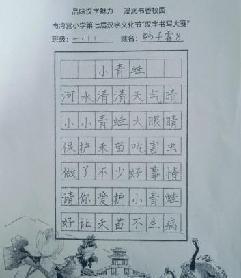 品味汉字魅力 浸润书香校园
小学第七届汉字文化节"汉字书写大赛"
班级：一.11 姓名：
小青蛙
河水清清天气晴
小小青蛙大眼睛
保护禾苗吃害虫
做了不少好事情
请你爱护小青蛙
好让禾苗不生病